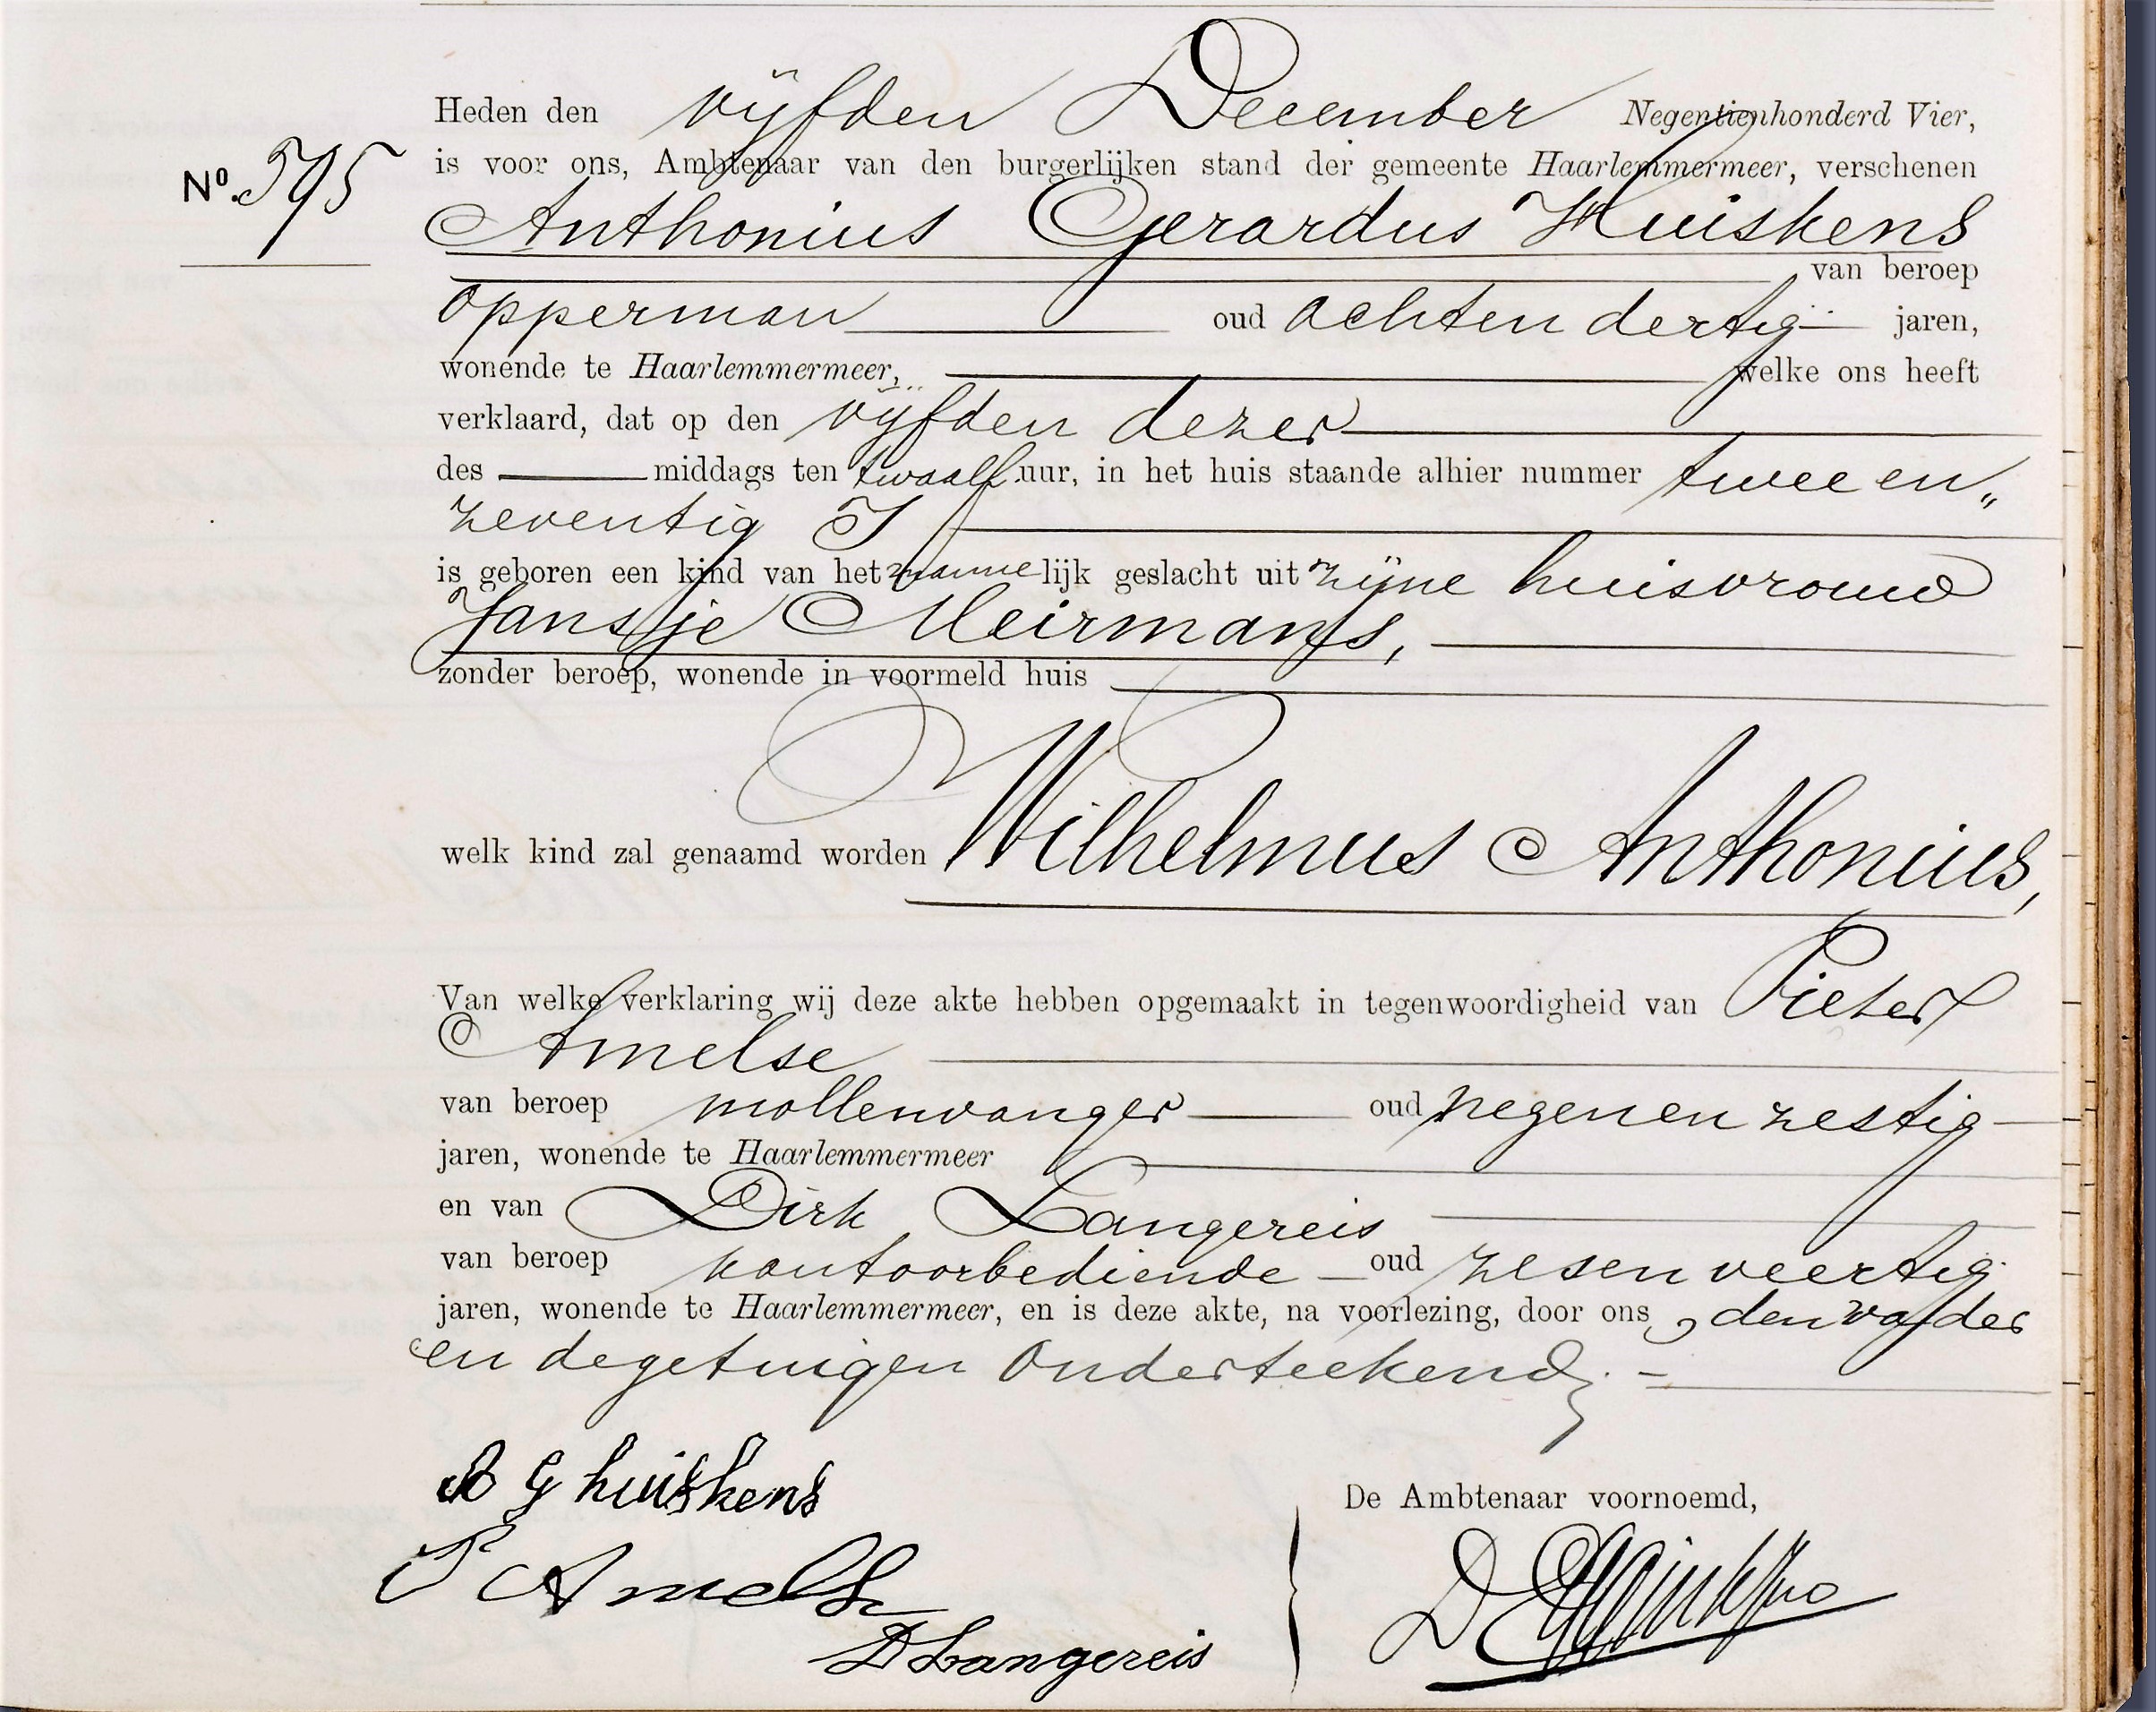 Heden den vijfden December Negentienhonderd Vier,
is voor ons, Ambtenaar van den burgerlijken stand der gemeente Haarlemmermeer, verschenen
No. 595
Anthonius Gerardus Huiskens
van beroep
opperman oud achten dertig jaren,
wonende te Haarlemmermeer, welke ons heeft
verklaard, dat op den vijfden dezer
des middags ten twaalf uur, in het huis staande alhier nummer twee en„
zeventig J
is geboren een kind van het mannelijk geslacht uit zijne huisvrouw
Jansje Meirmans,
zonder beroep, wonende in voormeld huis
welk kind zal genaamd worden Wilhelmus Anthonius,
Van welke verklaring wij deze akte hebben opgemaakt in tegenwoordigheid van Pieter
Amelse
van beroep mollenvanger oud negenen zestig
jaren, wonende te Haarlemmermeer
en van Dirk Langereis
van beroep kantoorbediende oud zesen veertig
jaren, wonende te Haarlemmermeer, en is deze akte, na voorlezing, door ons, den vader
en de getuigen onderteekend,
A G huiskens
De Ambtenaar voornoemd,
P Amelse
D Langereis